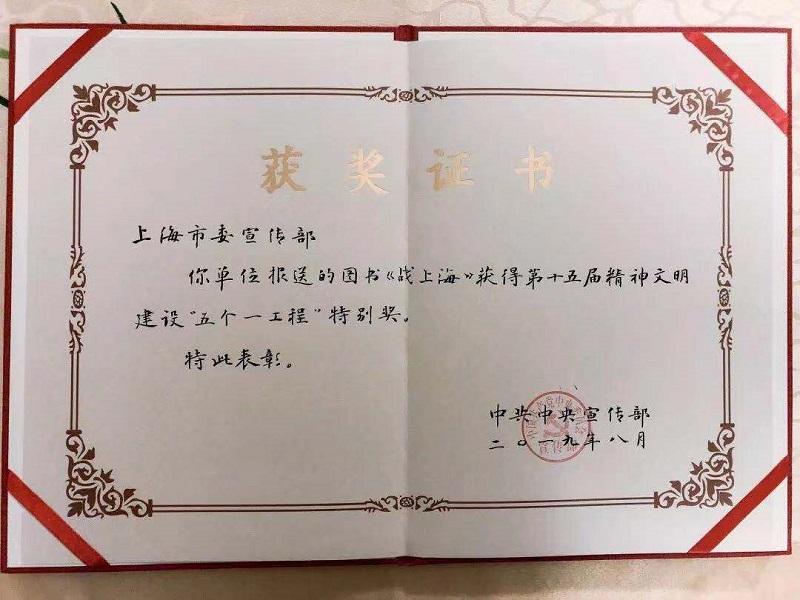 获奖证书
上海市委宣传部
你单位报送的图书《战上海》获得第十五届精神文明
建设“五个一工程”特别奖。
特此表彰。
中共中央宣传部
二〇一九年八月